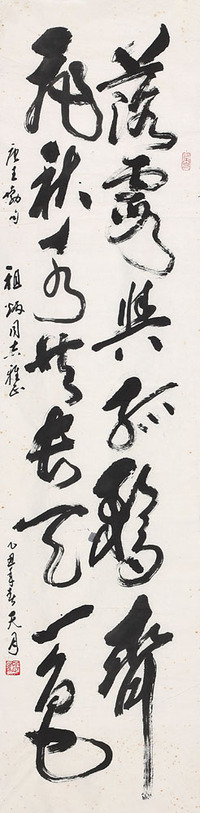 落霞與孤鶩齊
飛秋水共長天一色
唐王勃句 祖炳同志雅正 乙丑年春